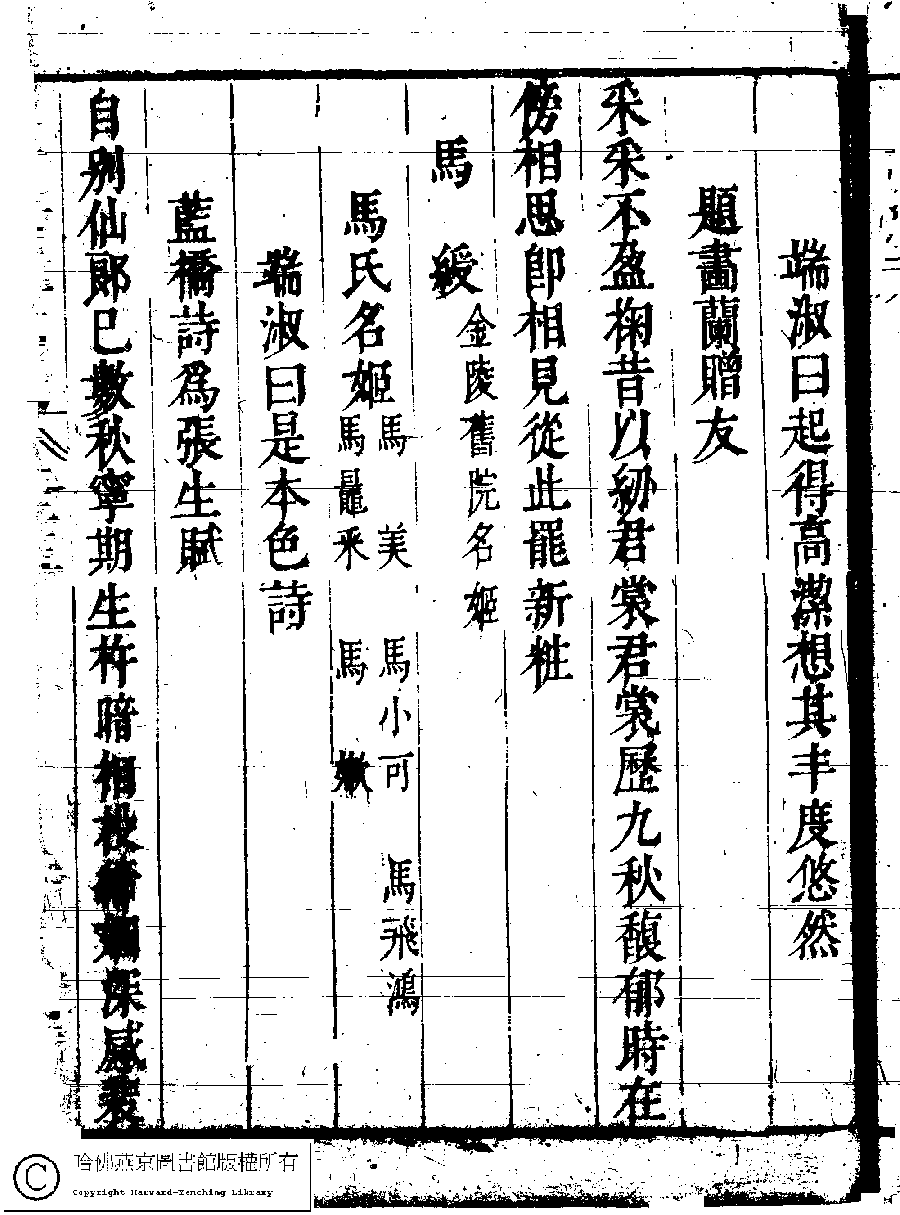 端淑曰起得高潔想其丰度悠然
題畫蘭贈友
采采不盈掬昔以紉君裳君裳歷九秋馥郁時在
傍相思卽相見從此罷新粧
馬緩金陵舊院名姬
馬氏名姬馬美 馬小可 馬飛鴻
馬鼂采 馬嫩
端淑曰是本色詩
藍橋詩爲張生賦
自別仙郞已數秋寧期生杵暗相投 深感裴
哈佛燕京圖書館版權所有
Copyright Harvard-Yenching Library